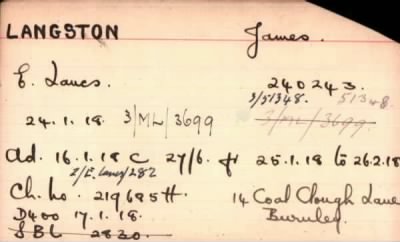 LANGSTON James.
E. Lancs. 240243.
3/51348. 51348
24.1.18. 3/ML/3699 3/ML/3699.
Ad. 16.1.18 C 27/6. fr 25.1.18 to 26.2.18
2/E. Lancs/282
Ch. No. 219685H 14 Coal Clough Lane
D400 17.1.18. Burnley.
SBL 2830.